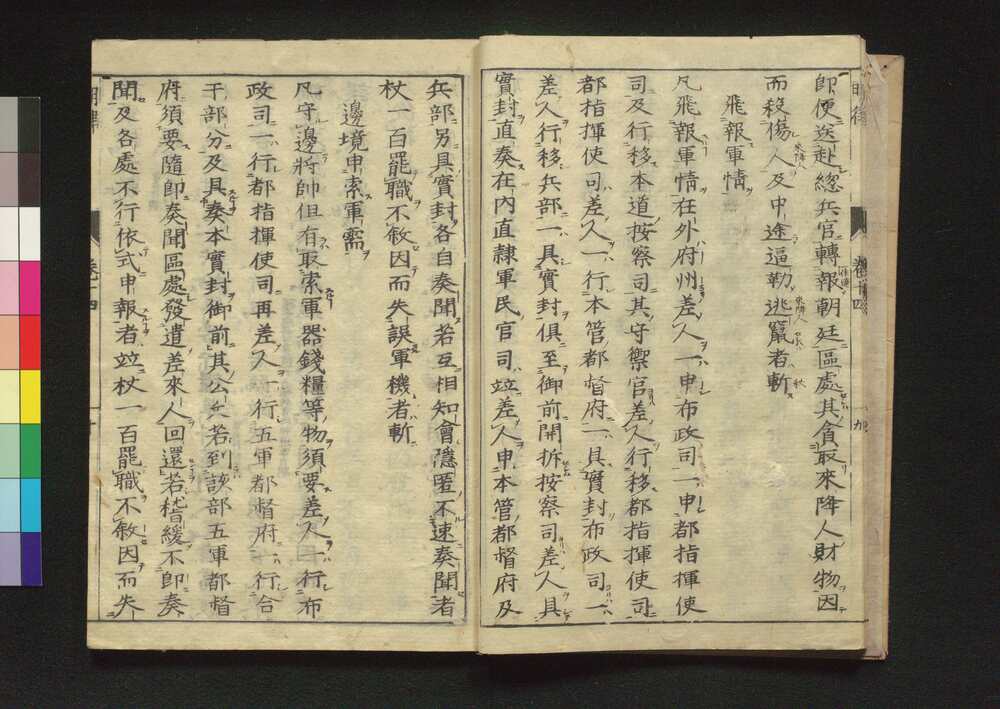 即便送赴總兵官轉報朝廷區處其貪取來降人財物因
而殺傷人及中途逼勒逃竄者斬
飛報軍情
凡飛報軍情在外府州差人一申布政司一申都指揮使
司及行移本道按察司其守禦官差人行移都指揮使司
都指揮使司差人一行本管都督府一具實封布政司一
差人行移兵部一具實封俱至御前開拆按察司差人具
實封直奏在內直隸軍民官司竝差人申本管都督府及
兵部另具實封各自奏聞若互相知會隱匿不速奏聞者
杖一百罷職不敘因而失誤軍機者斬
邊境申索軍需
凡守邊將帥但有取索軍器錢糧等物須要差人一行布
政司一行都指揮使司再差人一行五軍都督府一行合
干部分及具奏本實封御前其公文若到該部五軍都督
府須要隨卽奏聞區處發遣差來人回還若稽緩不卽奏
聞及各處不行依式申報者竝杖一百罷職不敘因而失